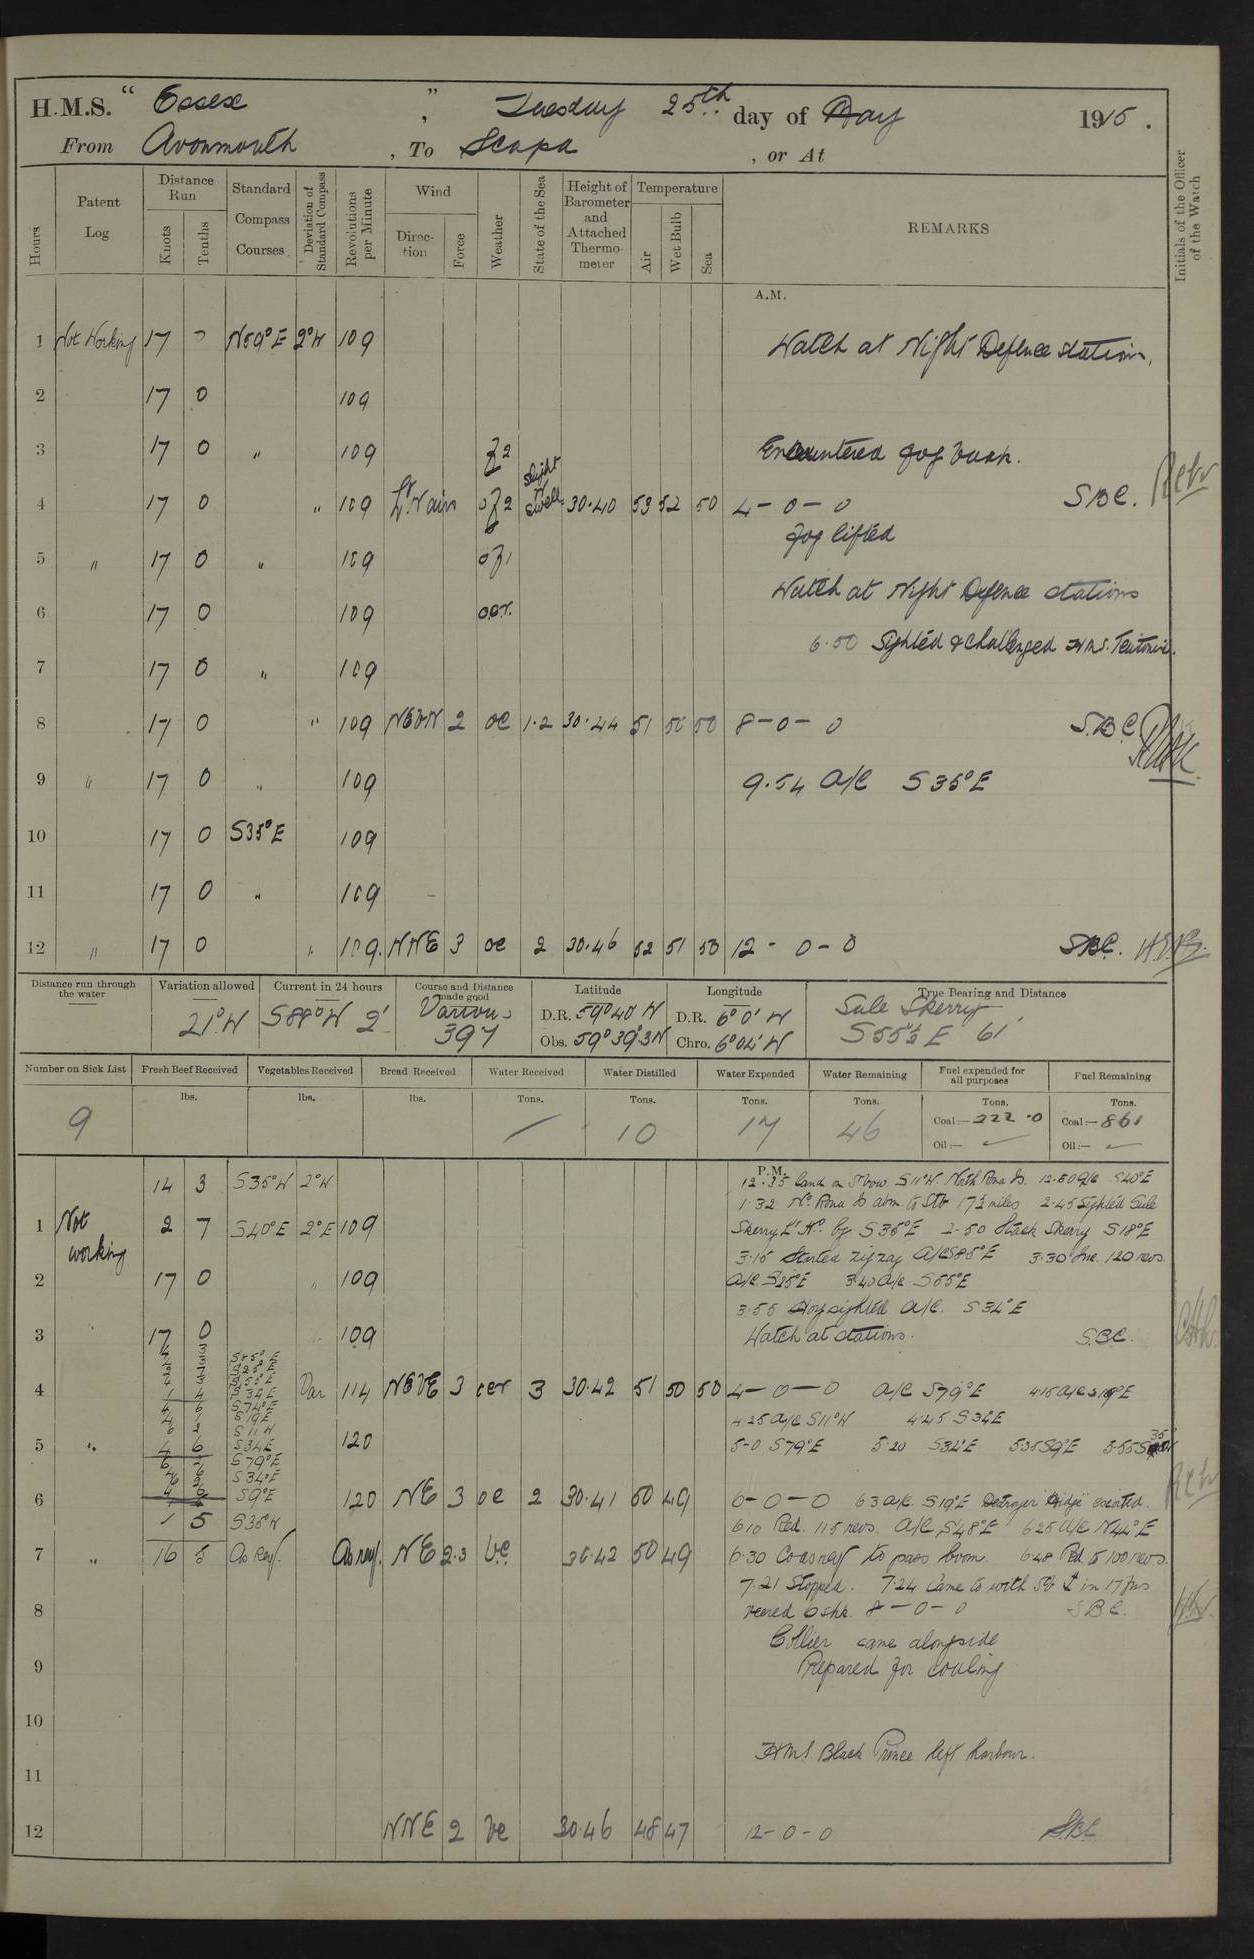 H.M.S. " Essex " , Tuesday 25th day of May 1915.
From Avonmouth , To Scapa , or At
Hours
Patent Log
Distance Run
Knots
Tenths
Standard Compass Courses
Deviation of Standard Compass
Revolutions per Minute
Wind
Direction
Force
Weather
State of the Sea
Height of Barometer and Attached Thermometer
Temperature
Air
Wet Bulb
Sea
REMARKS
Initials of the Officer of the Watch
A.M.
1 Not Working 17 0 N59°E 2°W 109 Watch at Night Defence station.
2 17 0 109
3 17 0 " 109 f2 Encountered fog bank.
4 17 0 " 109 Lt airs of2 slight swell 30.40 53 52 50 4-0-0 SBC.
fog lifted
5 " 17 0 " 109 of1
Watch at Night Defence stations
6 17 0 109 ocr.
6.50 Sighted & challenged H.M.S. Teutonic.
7 17 0 " 109
8 17 0 " 109 NEbN 2 oc 1.2 30.44 51 50 50 8-0-0 S.B.C.
9 " 17 0 " 109 9.54 A/C S35°E
10 17 0 S35°E 109
11 17 0 " 109
12 " 17 0 " 109. NNE 3 oc 2 30.46 52 51 50 12-0-0 SBC.
Distance run through the water
Variation allowed 21°W
Current in 24 hours S88°W 2'
Course and Distance made good Various 397
Latitude D.R. 59°40'N Obs. 59°39'3N
Longitude D.R. 6°0'W Chro. 6°04'W
True Bearing and Distance Sule Skerry S55½E 61'
Number on Sick List 9
Fresh Beef Received lbs.
Vegetables Received lbs.
Bread Received lbs.
Water Received Tons.
Water Distilled Tons. 10
Water Expended Tons. 17
Water Remaining Tons. 46
Fuel expended for all purposes Tons. Coal:— 222.0 Oil:—
Fuel Remaining Tons. Coal:— 861 Oil:—
P.M.
14 3 S35°W 2°W 12.35 land on bow S11°W. North Rona Is. 12.50 A/C S40°E
1.32 No. Rona Is abm. to Stb 17½ miles 2.45 Sighted Sule
1 Not working 2 7 S40°E 2°E 109 Skerry Lt Ho. by S35°E 2.50 Stack Skerry S18°E
3.15 Started zigzag A/C S85°E 3.30 Inc. 120 revs.
2 17 0 " 109 A/C S25°E 3.40 A/C S55°E
3.55 Hoy sighted A/C. S34°E
3 17 0 109 Watch at stations. S.B.C.
S85°E
S25°E
S55°E
4 1 4 S34E Var 114 NEbE 3 ocr 3 30.42 51 50 50 4-0-0 A/C S79°E 4.15 A/C S19°E
S74°E
S19E
4.25 A/C S11°W 4.45 S34E
S11W
5 " 4 6 S34E 120 5-0 S79°E 5.20 S34°E 5.35 S9°E 5.55 S35W
S79°E
S34°E
6 S9°E 120 NE 3 oc 2 30.41 50 49 6-0-0 6.3 A/C. S19°E Destroyer escorted.
1 5 S35°W 6.10 Red. 115 revs. A/C S48°E 6.25 A/C N44°E
7 " 16 5 As req. As req. NE 2.3 b.c. 30.42 50 49 6.30 Co as req to pass boom. 6.48 Red. to 100 revs.
7.21 Stopped. 7.24 Came to with St in 17 fms
8 veered 6 shk. 8-0-0 SBC.
Collier came alongside
9 Prepared for coaling
10
HMS. Black Prince left harbour.
11
12 NNE 2 bc 30.46 48 47 12-0-0 S.B.C